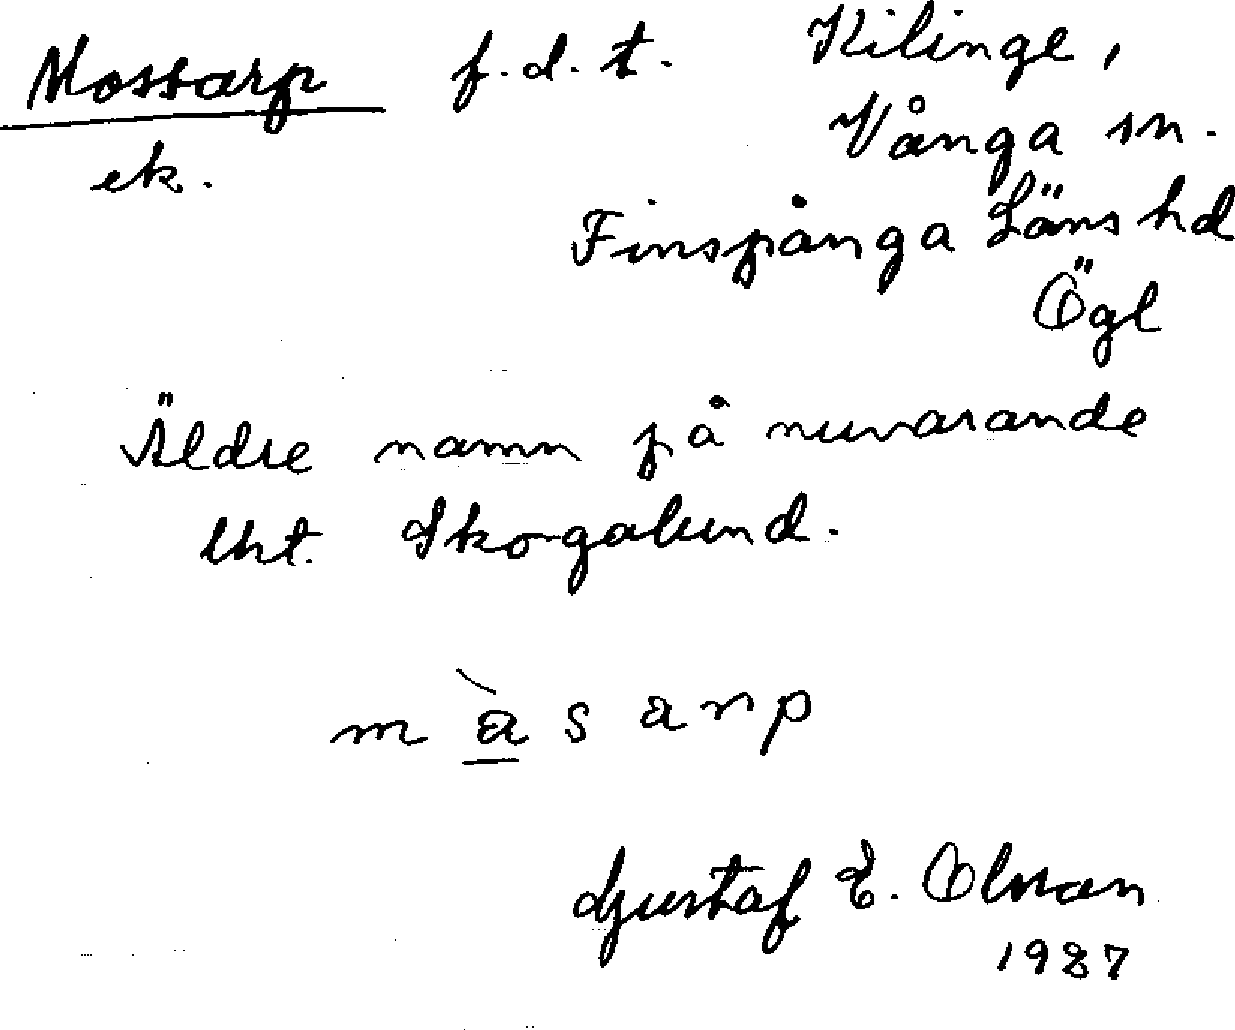 Mossarp f.d.t. Kilinge,
ek. Vånga sn.
Finspånga Läns hd
Ögl
Äldre namn på nuvarande
lht. Skogalund.
m à s arp
Gustaf E. Olsson
1987